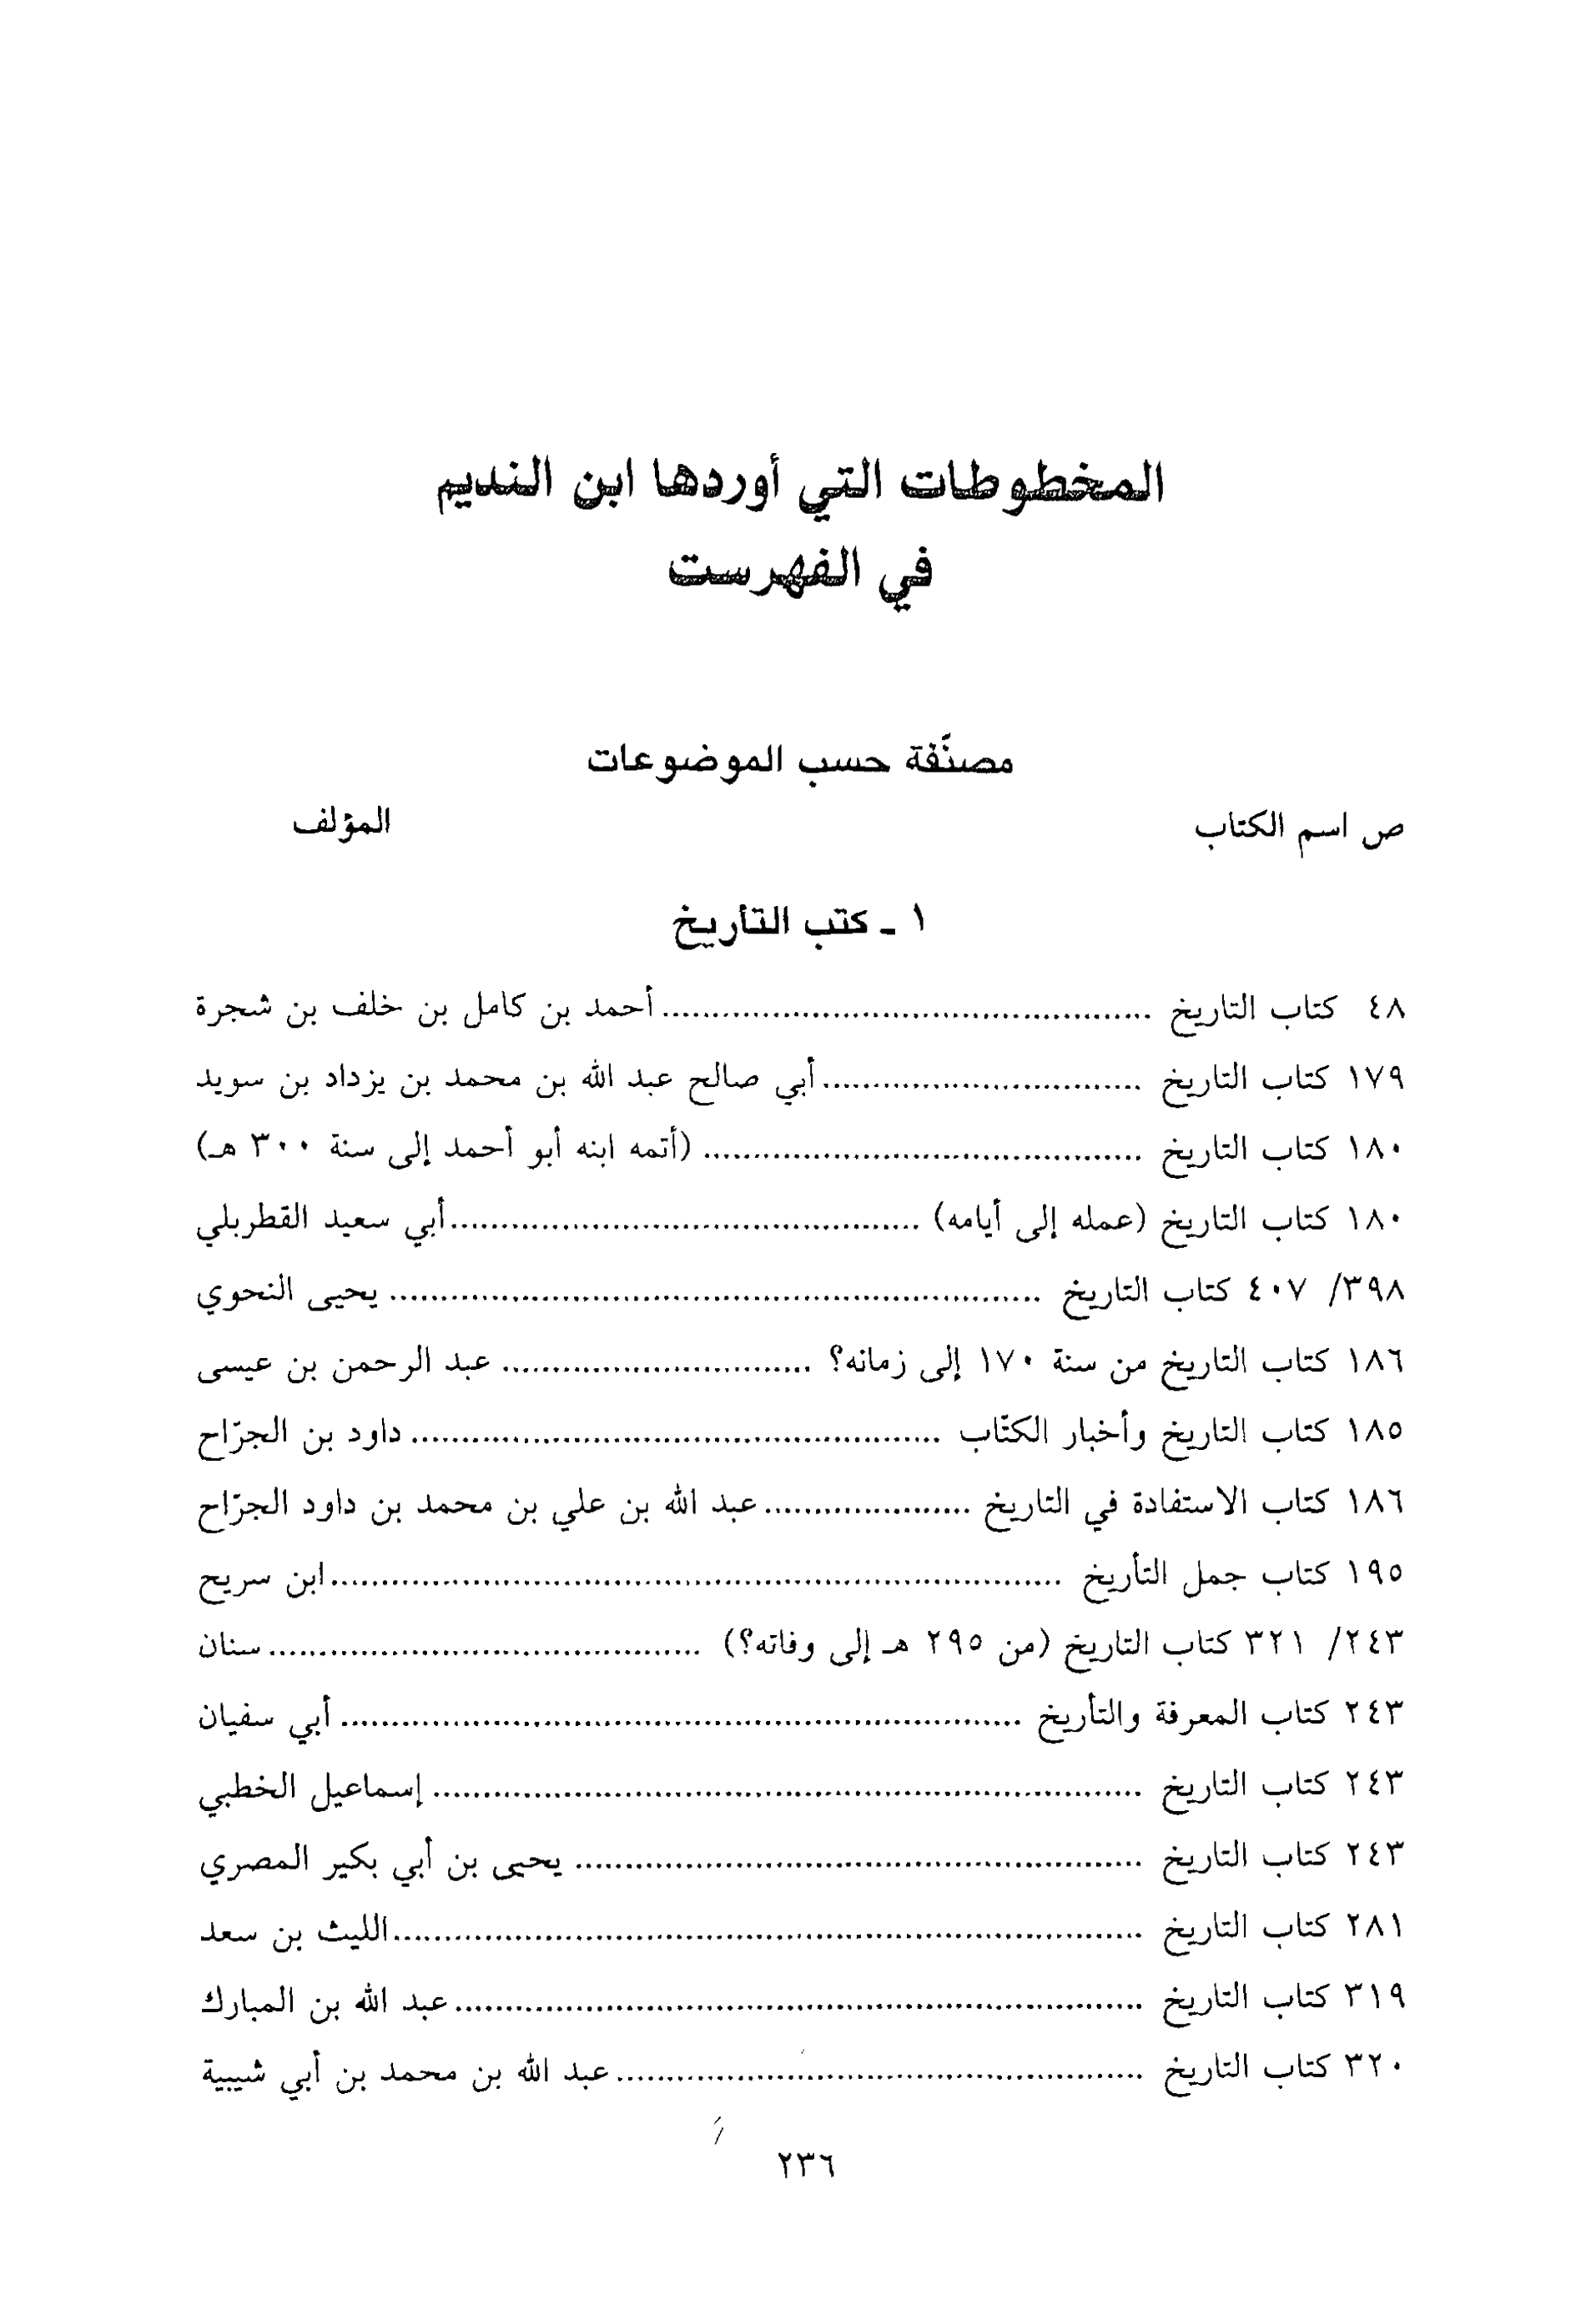 المخطوطات التي أوردها ابن النديم
في الفهرست
مصنّفة حسب الموضوعات
ص اسم الكتاب المؤلف
١ ـ كتب التأريخ
٤٨ كتاب التاريخ ................................................ أحمد بن كامل بن خلف بن شجرة
١٧٩ كتاب التاريخ ................................ أبي صالح عبد الله بن محمد بن يزداد بن سويد
١٨٠ كتاب التاريخ ............................................ (أتمه ابنه أبو أحمد إلى سنة ٣٠٠ هـ)
١٨٠ كتاب التاريخ (عمله إلى أيامه) ............................................... أبي سعيد القطربلي
٣٩٨/ ٤٠٧ كتاب التاريخ ................................................................ يحيى النحوي
١٨٦ كتاب التاريخ من سنة ١٧٠ إلى زمانه؟ ............................... عبد الرحمن بن عيسى
١٨٥ كتاب التاريخ وأخبار الكتّاب .................................................... داود بن الجرّاح
١٨٦ كتاب الاستفادة في التاريخ ..................... عبد الله بن علي بن محمد بن داود الجرّاح
١٩٥ كتاب جمل التأريخ ........................................................................ ابن سريح
٢٤٣/ ٣٢١ كتاب التاريخ (من ٢٩٥ هـ إلى وفاته؟) ........................................... سنان
٢٤٣ كتاب المعرفة والتأريخ ................................................................... أبي سفيان
٢٤٣ كتاب التاريخ ...................................................................... إسماعيل الخطبي
٢٤٣ كتاب التاريخ ........................................................ يحيى بن أبي بكير المصري
٢٨١ كتاب التاريخ .......................................................................... الليث بن سعد
٣١٩ كتاب التاريخ .................................................................... عبد الله بن المبارك
٣٢٠ كتاب التاريخ .................................................... عبد الله بن محمد بن أبي شيبية
٢٣٦